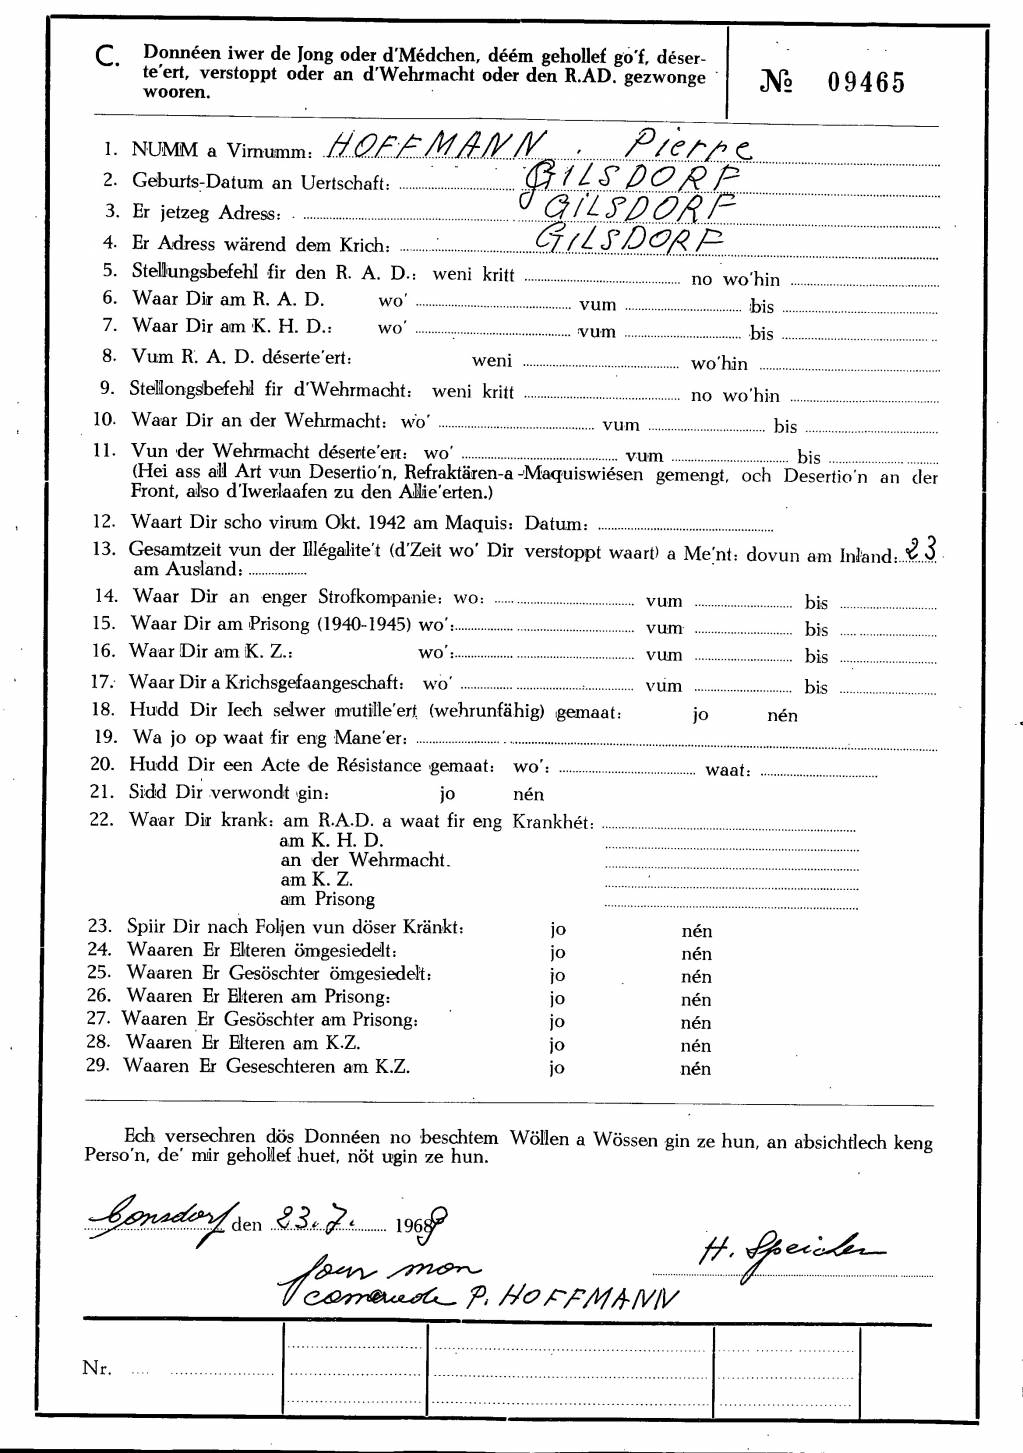 C. Donnéen iwer de Jong oder d'Médchen, déém gehollef go'f, déser-
te'ert, verstoppt oder an d'Wehrmacht oder den R.AD. gezwonge
wooren.
№ 09465
1. NUMM a Virnumm: HOFFMANN . Pierre
2. Geburts-Datum an Uertschaft: GILSDORF
3. Er jetzeg Adress: GILSDORF
4. Er Adress wärend dem Krich: GILSDORF
5. Stellungsbefehl fir den R. A. D.: weni kritt no wo'hin
6. Waar Dir am R. A. D. wo' vum bis
7. Waar Dir am K. H. D.: wo' vum bis
8. Vum R. A. D. déserte'ert: weni wo'hin
9. Stellongsbefehl fir d'Wehrmacht: weni kritt no wo'hin
10. Waar Dir an der Wehrmacht: wo' vum bis
11. Vun der Wehrmacht déserte'ert: wo' vum bis
(Hei ass all Art vun Desertio'n, Refraktären-a-Maquiswiésen gemengt, och Desertio'n an der
Front, also d'Iwerlaafen zu den Allie'erten.)
12. Waart Dir scho virum Okt. 1942 am Maquis: Datum:
13. Gesamtzeit vun der Illégalite't (d'Zeit wo' Dir verstoppt waart) a Me'nt: dovun am Inland: 23
am Ausland:
14. Waar Dir an enger Strofkompanie: wo: vum bis
15. Waar Dir am Prisong (1940-1945) wo': vum bis
16. Waar Dir am K. Z.: wo': vum bis
17. Waar Dir a Krichsgefaangeschaft: wo' vum bis
18. Hudd Dir Iech selwer mutille'ert (wehrunfähig) gemaat: jo nén
19. Wa jo op waat fir eng Mane'er:
20. Hudd Dir een Acte de Résistance gemaat: wo': waat:
21. Sidd Dir verwondt gin: jo nén
22. Waar Dir krank: am R.A.D. a waat fir eng Krankhét:
am K. H. D.
an der Wehrmacht.
am K. Z.
am Prisong
23. Spiir Dir nach Foljen vun döser Kränkt: jo nén
24. Waaren Er Elteren ömgesiedelt: jo nén
25. Waaren Er Gesöschter ömgesiedelt: jo nén
26. Waaren Er Elteren am Prisong: jo nén
27. Waaren Er Gesöschter am Prisong: jo nén
28. Waaren Er Elteren am K.Z. jo nén
29. Waaren Er Geseschteren am K.Z. jo nén
Ech versechren dös Donnéen no beschtem Wöllen a Wössen gin ze hun, an absichtlech keng
Perso'n, de' mir gehollef huet, nöt ugin ze hun.
Consdorf den 23. 7. 1968
H. Speicher
Pour mon
camerade P. HOFFMANN
Nr.